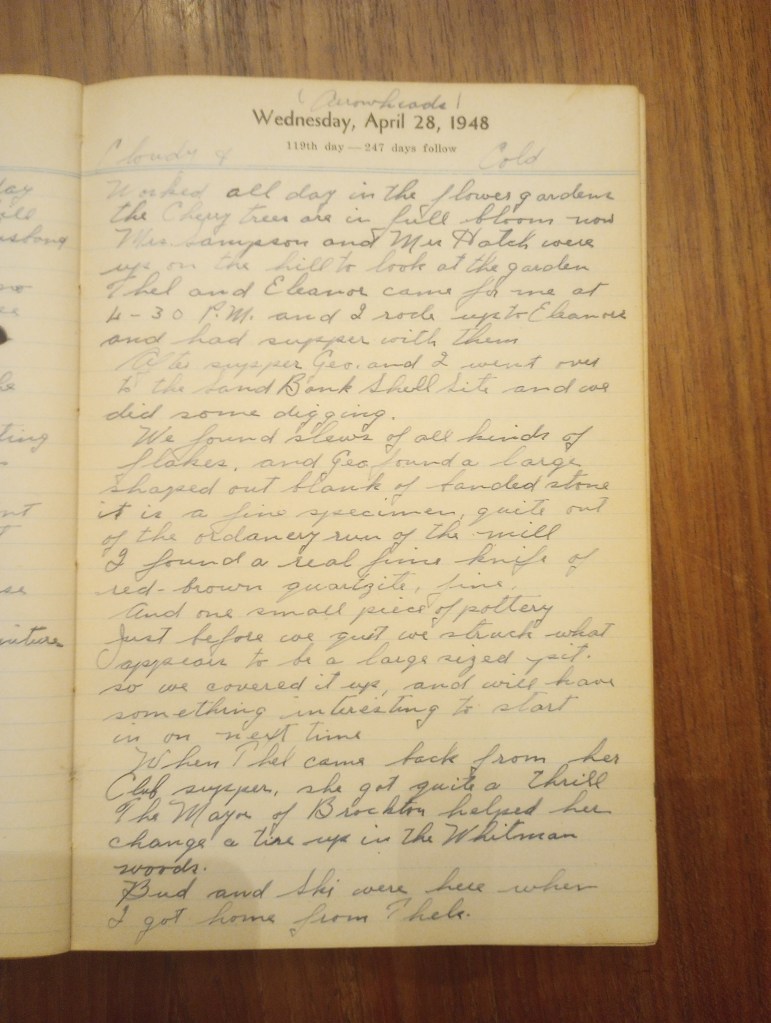 (Arrowheads)
Wednesday, April 28, 1948
119th day — 247 days follow
Cloudy & Cold
Worked all day in the flower gardens
the Cherry trees are in full bloom now
Mrs Sampson and Mrs Hatch were
up on the hill to look at the garden
Thel and Eleanor came for me at
4-30 P.M. and I rode up to Eleanors
and had supper with them
After supper Geo. and I went over
to the Sand Bank Shell Site and we
did some digging.
We found slews of all kinds of
flakes, and Geo found a large
shaped out blank of banded stone
it is a fine specimen, quite out
of the ordanery run of the mill
I found a real fine knife of
red-brown quartzite, fine.
And one small piece of pottery
Just before we quit we struck what
appears to be a large sized pit.
so we covered it up, and will have
something interesting to start
in on next time
When Thel came back from her
Club supper, she got quite a thrill
The Mayor of Brockton helped her
change a tire up in the Whitman
woods.
Bud and Ski were here when
I got home from Thels.
ay
no
be
ting
nt
t
se
niture